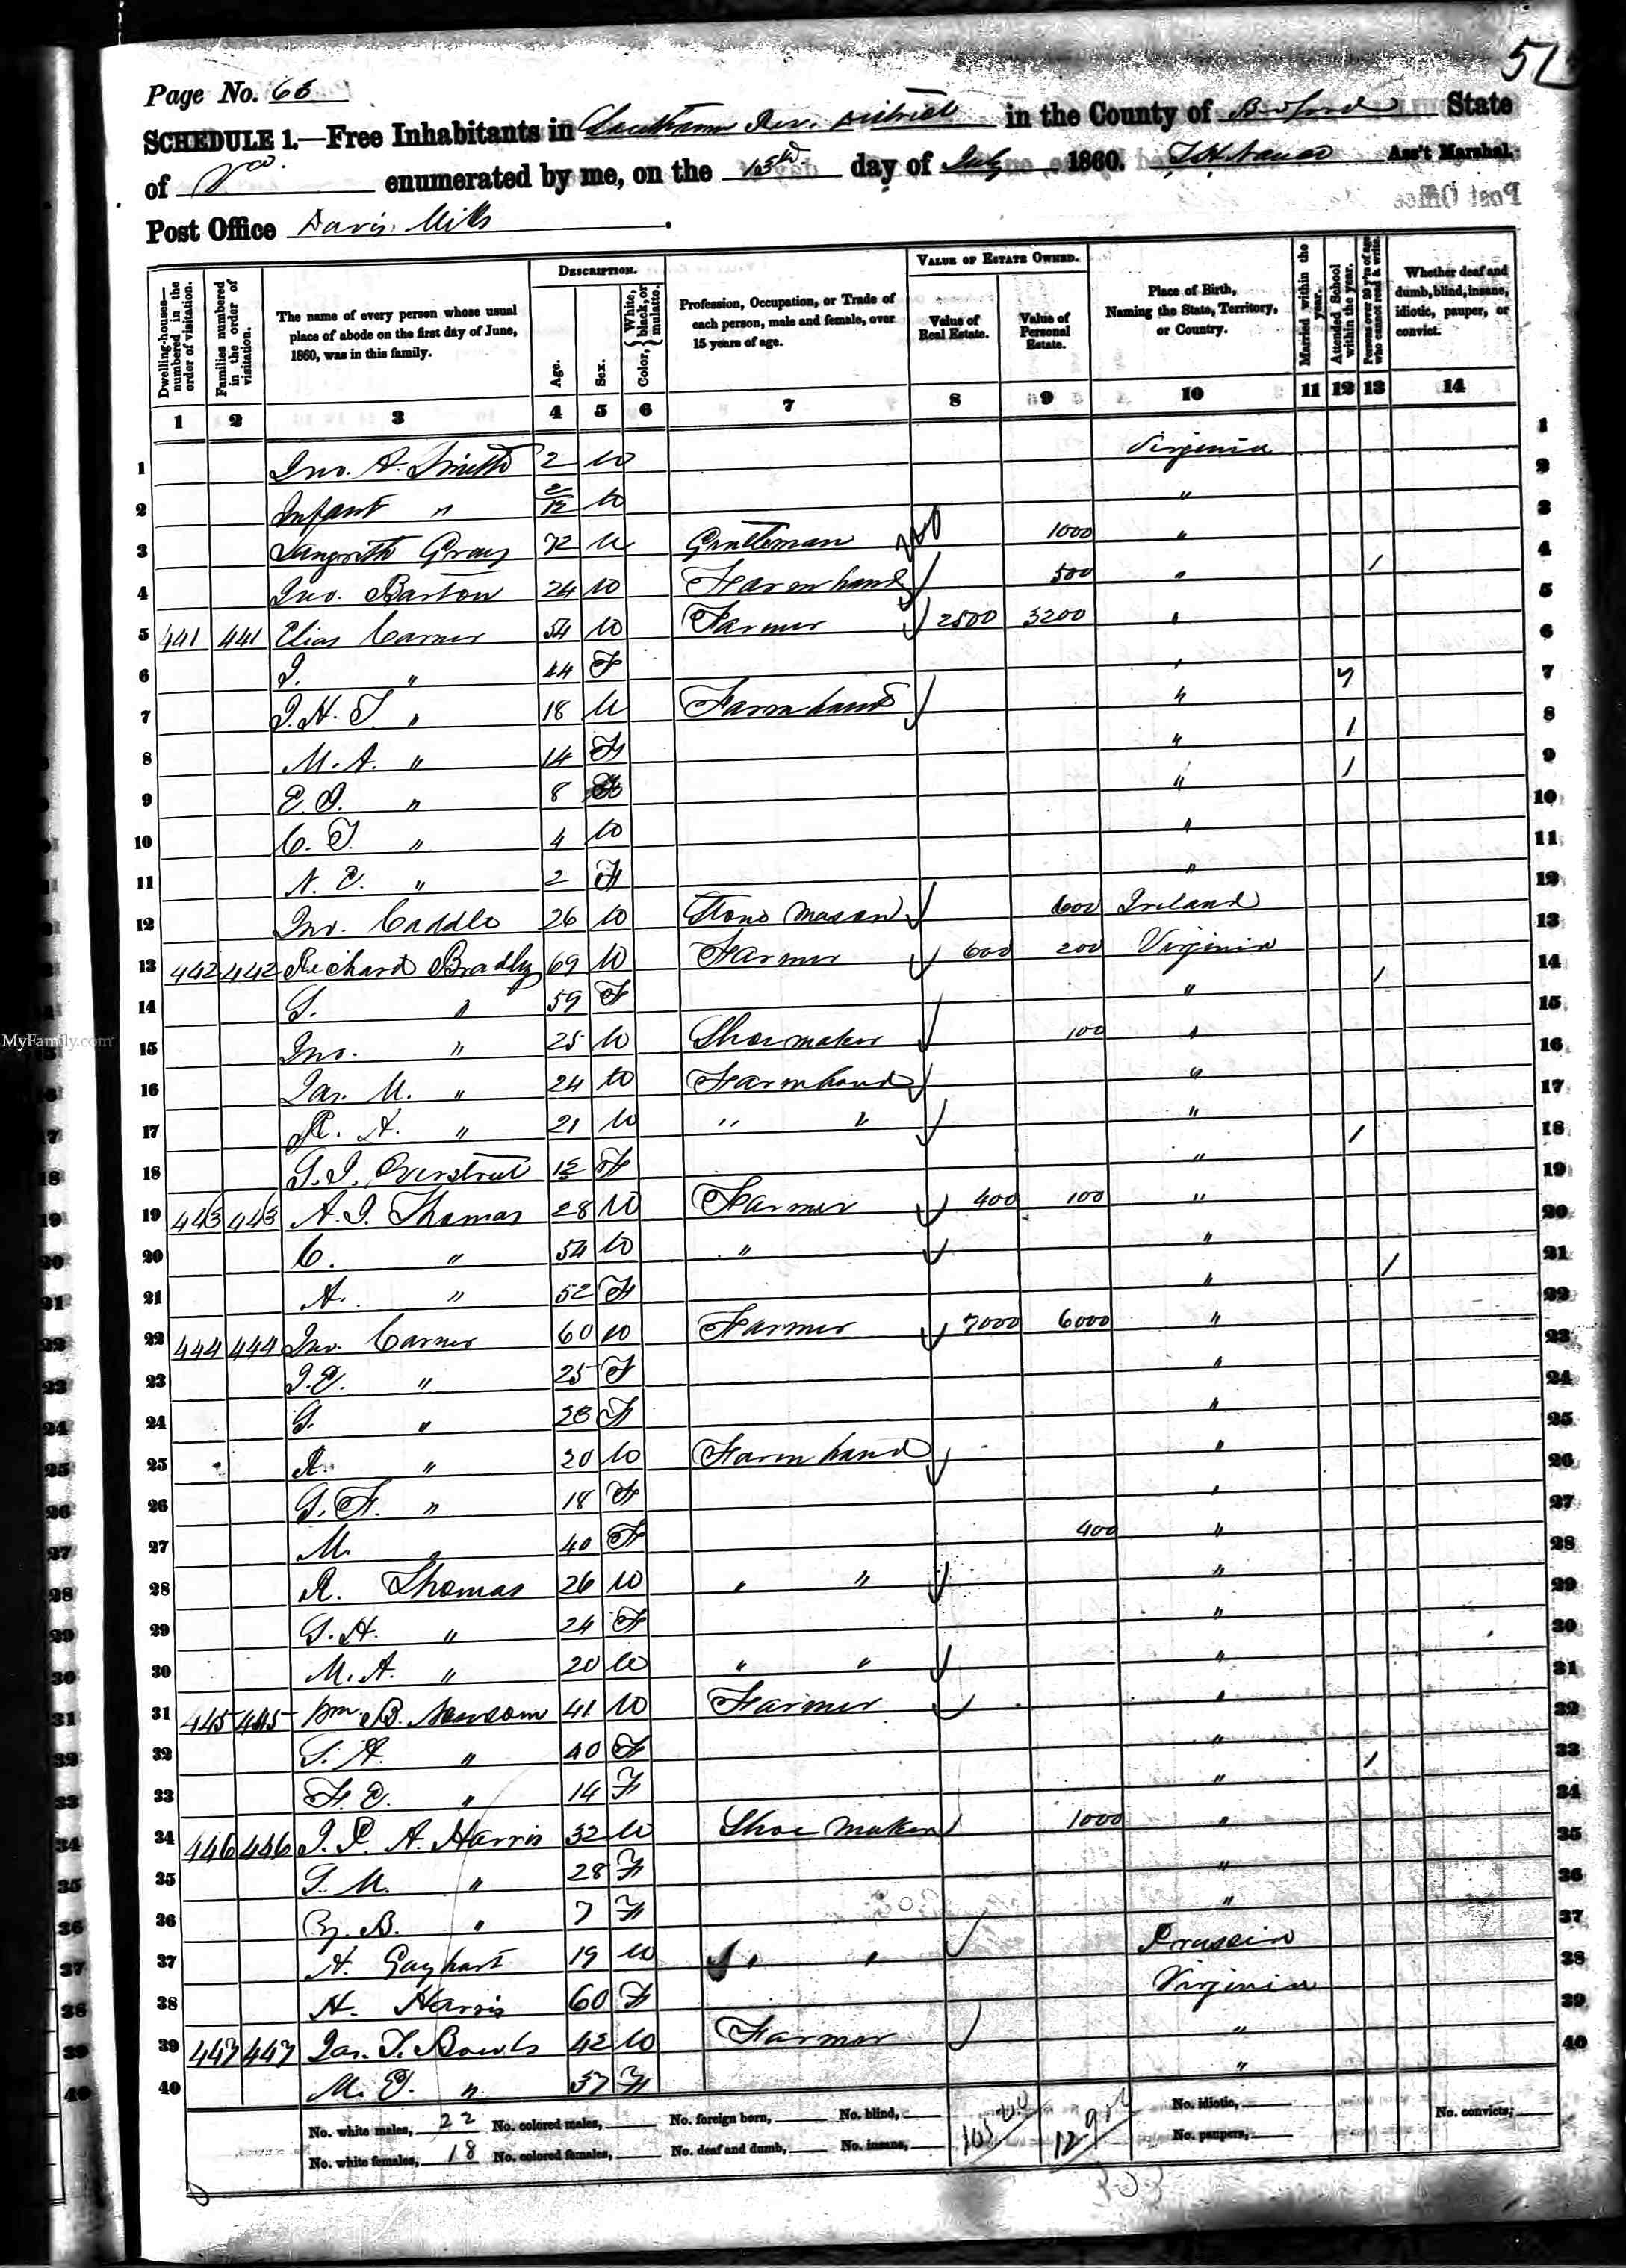 Page No. 66
SCHEDULE 1.—Free Inhabitants in Southern Rev. District in the County of Bedford State
of Va. enumerated by me, on the 13th day of July 1860. Ass't Marshal.
Post Office Davis Mills.
Dwelling-houses—numbered in the order of visitation.
Families numbered in the order of visitation.
The name of every person whose usual place of abode on the first day of June, 1860, was in this family.
DESCRIPTION.
Age.
Sex.
Color, {White, black, or mulatto.
Profession, Occupation, or Trade of each person, male and female, over 15 years of age.
VALUE OF ESTATE OWNED.
Value of Real Estate.
Value of Personal Estate.
Place of Birth, Naming the State, Territory, or Country.
Married within the year.
Attended School within the year.
Persons over 20 y'rs of age who cannot read & write.
Whether deaf and dumb, blind, insane, idiotic, pauper, or convict.
1 2 3 4 5 6 7 8 9 10 11 12 13 14
1 Jno. A. Smith 2 M Virginia
2 Infant " 2/12 M "
3 Gray 72 M Gentleman 1000 "
4 Jno. Barton 24 M Farm hand 500 " /
5 441 441 Elias Carner 54 M Farmer 2500 3200 "
6 J. " 44 F "
7 J. H. T. " 18 M Farm hand "
8 M. A. " 14 F " /
9 E. J. " 8 " /
10 C. T. " 4 M "
11 N. E. " 2 F "
12 Jno. Caddle 26 M Stone Mason 600 Ireland
13 442 442 Richard Bradley 69 M Farmer 600 200 Virginia
14 S. " 59 F " /
15 Jno. " 25 M Shoemaker 100 "
16 Jas. M. " 24 M Farm hand "
17 R. A. " 21 M " " "
18 S. J. Overstreet F " /
19 443 443 A. J. Thomas 28 M Farmer 400 100 "
20 C. " 54 M " "
21 A. " 52 F " /
22 444 444 Jno. Carner 60 M Farmer 7000 6000 "
23 J. E. " 25 F "
24 S. " 23 F "
25 R. " 20 M Farm hand "
26 S. F. " 18 F "
27 M. " 40 F 400 "
28 R. Thomas 26 M " " "
29 S. H. " 24 F "
30 M. A. " 20 M " " "
31 445 445 Wm. B. Newsom 41 M Farmer "
32 S. A. " 40 F "
33 F. E. " 14 F " /
34 446 446 J. P. A. Harris 32 M Shoe Maker 1000 "
35 S. M. " 28 F "
36 B. " 7 F "
37 A. Gayhart 19 M " " Prussia
38 H. Harris 60 F Virginia
39 447 447 Jas. T. Bowls 42 M Farmer "
40 M. E. " 37 F "
No. white males, 22 No. colored males, No. foreign born, No. blind, No. idiotic, No. convicts,
No. white females, 18 No. colored females, No. deaf and dumb, No. insane, No. paupers,
MyFamily.com